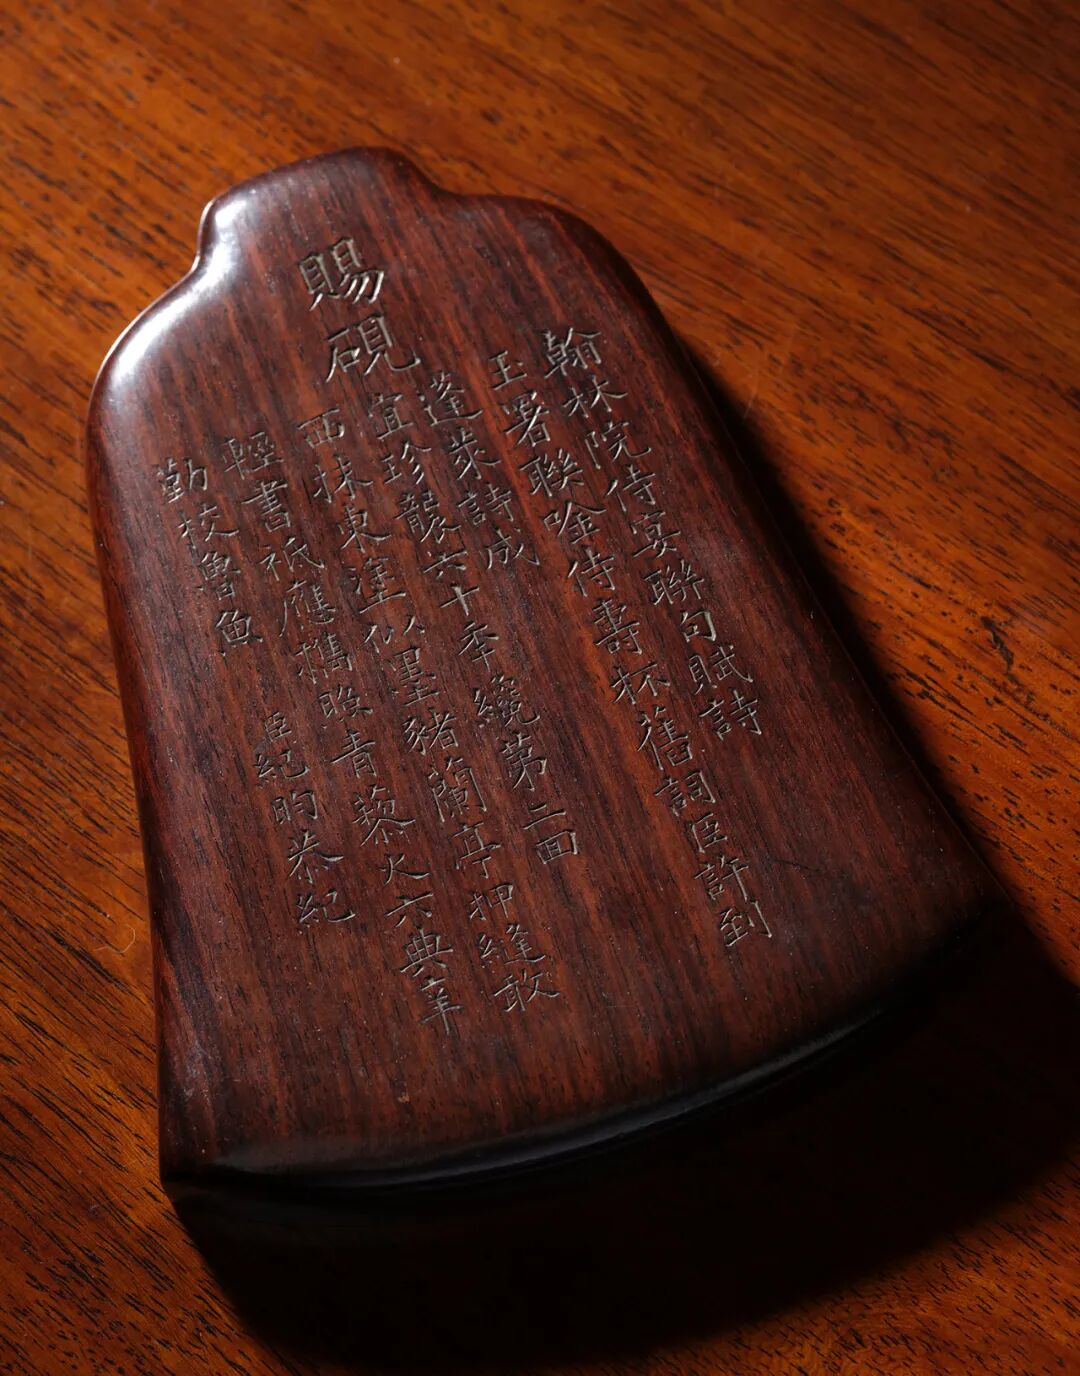 翰林院侍宴聯句賦詩
玉署聯唫侍壽杯舊詞臣許到
蓬萊詩成
賜硯宜珍襲六十秊纔第二囬
西抹東塗似墨豬蘭亭押縫敢
輕書祇應攜照青藜火六典辛
勤校魯魚
臣紀昀恭紀